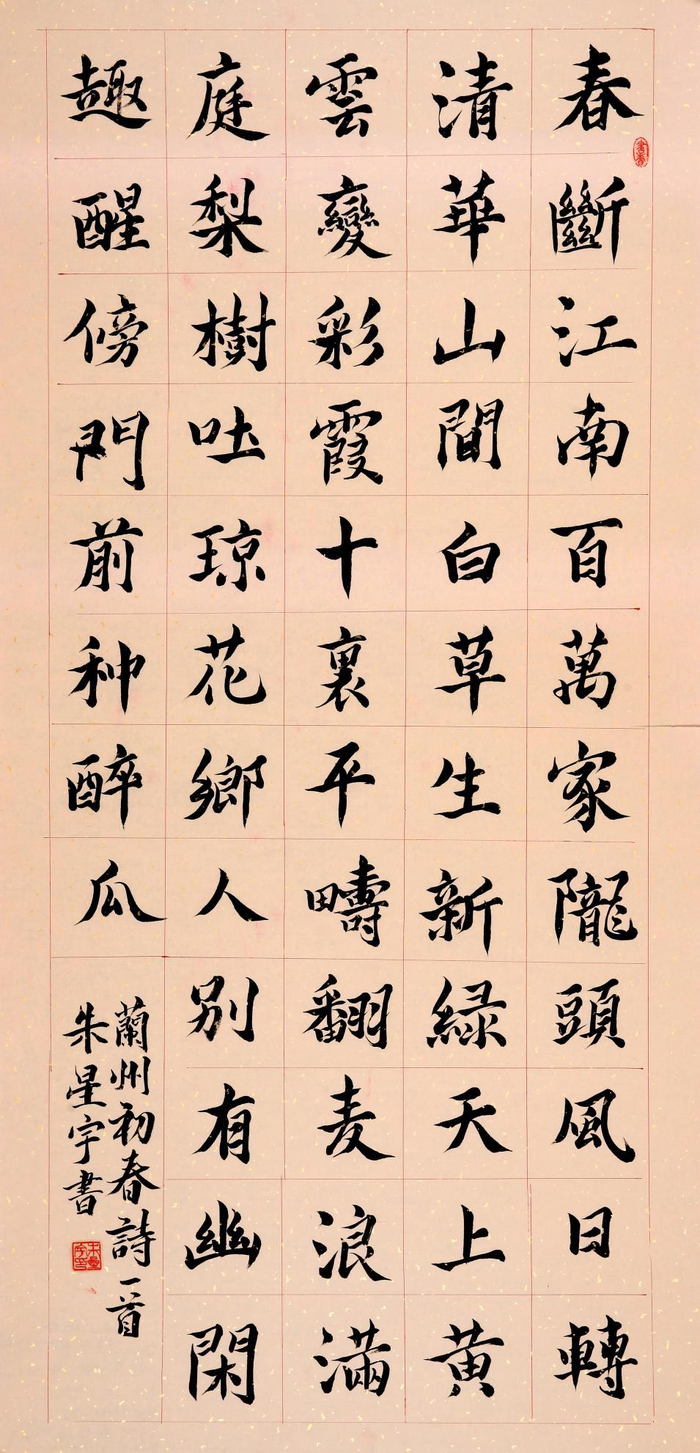 春斷江南百萬家隴頭風日轉
清華山間白草生新緑天上黄
雲變彩霞十裏平疇翻麦浪滿
庭梨樹吐琼花鄉人別有幽閑
趣醒傍門前种醉瓜
蘭州初春詩一首
朱星宇書